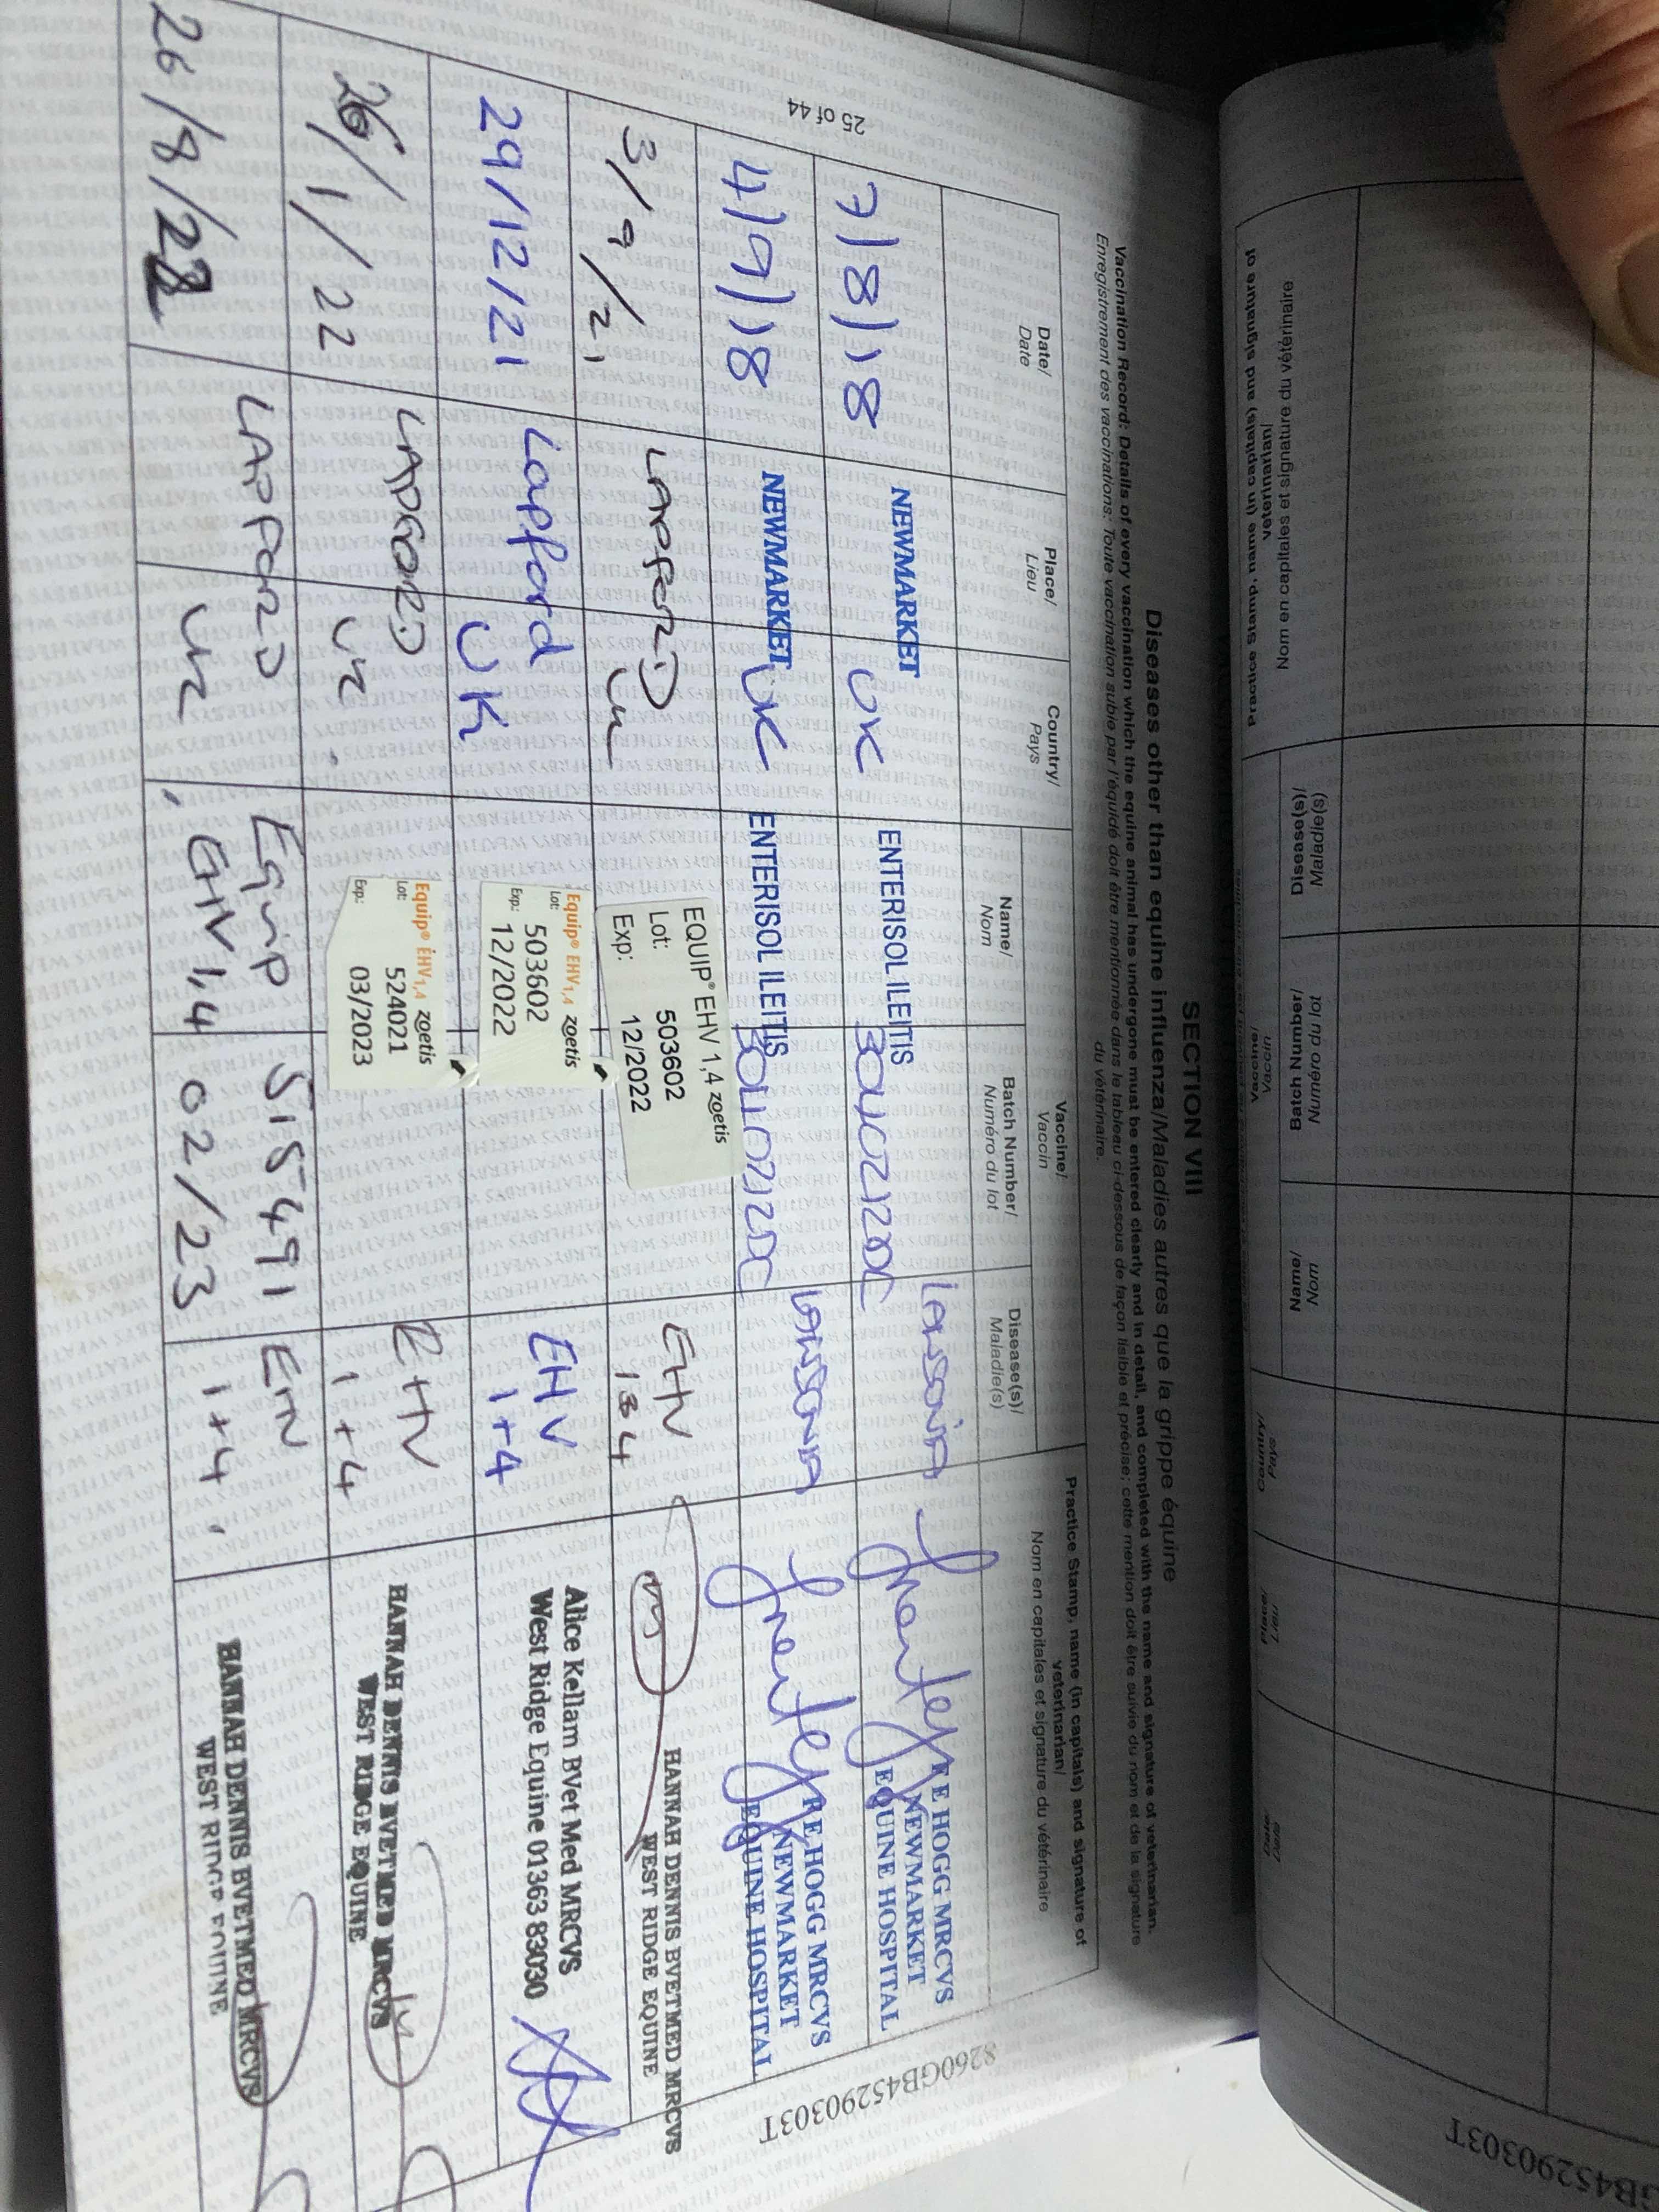 SECTION VIII
Diseases other than equine influenza/Maladies autres que la grippe équine
Vaccination Record: Details of every vaccination which the equine animal has undergone must be entered clearly and in detail, and completed with the name and signature of veterinarian.
Enregistrement des vaccinations: Toute vaccination subie par l'équidé doit être mentionnée dans le tableau ci-dessous de façon lisible et précise; cette mention doit être suivie du nom et de la signature
du vétérinaire.
Date/
Date
Place/
Lieu
Country/
Pays
Vaccine/
Vaccin
Name/
Nom
Batch Number/
Numéro du lot
Disease(s)/
Maladie(s)
Practice Stamp, name (in capitals) and signature of
veterinarian/
Nom en capitales et signature du vétérinaire
7/8/18
NEWMARKET
UK
ENTERISOL ILEITIS
Lawsonia
E HOGG MRCVS
NEWMARKET
EQUINE HOSPITAL
4/9/18
NEWMARKET
UK
ENTERISOL ILEITIS
Lawsonia
E HOGG MRCVS
NEWMARKET
EQUINE HOSPITAL
3/9/21
LAPFORD
UK
EQUIP® EHV 1,4 zoetis
Lot: 503602
Exp: 12/2022
EHV
1&4
HANNAH DENNIS BVETMED MRCVS
WEST RIDGE EQUINE
29/12/21
Lapford
UK
Equip® EHV1,4 zoetis
Lot: 503602
Exp.: 12/2022
EHV
1+4
Alice Kellam BVet Med MRCVS
West Ridge Equine 01363 83030
26/1/22
LAPFORD
UK
Equip® EHV1,4 zoetis
Lot: 524021
Exp.: 03/2023
EHV
1+4
HANNAH DENNIS BVETMED MRCVS
WEST RIDGE EQUINE
26/8/22
LAPFORD
UK
Equip 515491
EHV 1,4 02/23
EHV
1+4
HANNAH DENNIS BVETMED MRCVS
WEST RIDGE EQUINE
25 of 44
8260GB45290303T
Practice Stamp, name (in capitals) and signature of
veterinarian/
Nom en capitales et signature du vétérinaire
Disease(s)/
Maladie(s)
Batch Number/
Numéro du lot
Name/
Nom
Vaccine/
Vaccin
Country/
Pays
Place/
Lieu
Date/
Date
GB45290303T